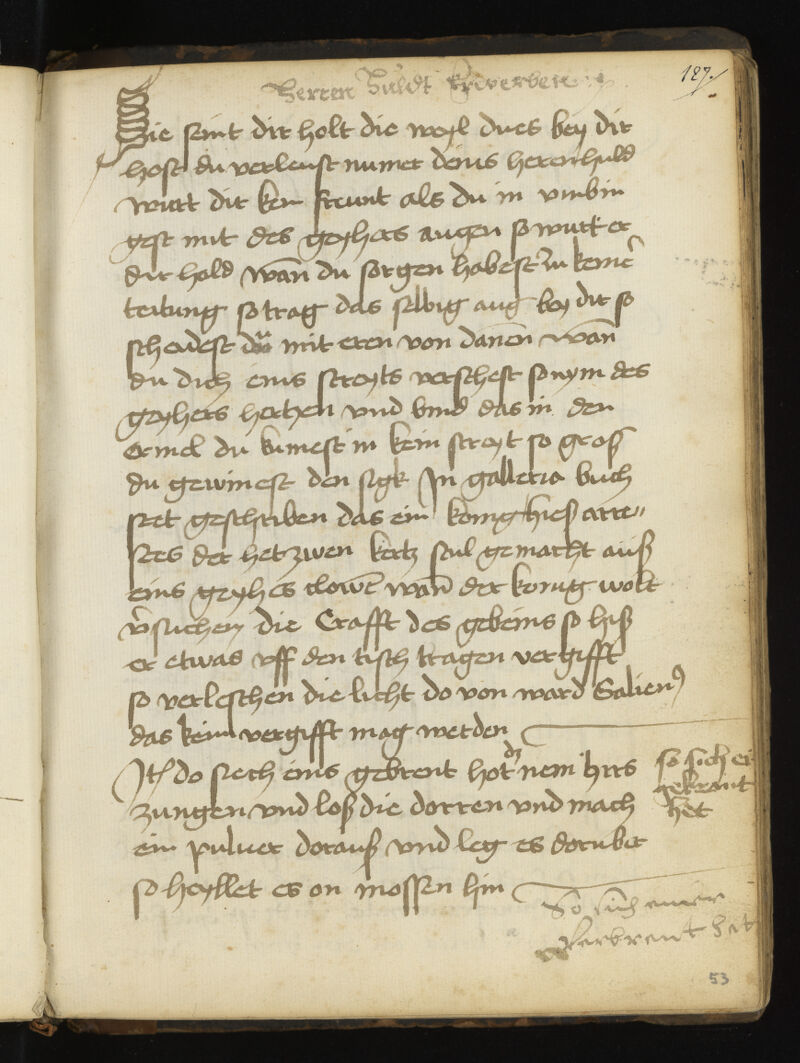 Herren huldt Erwerben
187.
Sie seint dir holt die weyl dues bey dir
host du verleust numer deins heren huld
wirt dir kein freunt als du in vmbin
gest mit des geyhers augen so wirt er
dir hold wan du sorgen habest in keiner
teitung so trag das selbig aug bey dir so
scheidest du mit eren von danen wan
du dich eins streyts versehest so nym des
geyhers hertzen vnd bind das in den
ermel du kumest in kein streyt so groß
du gewinest den sigk In galleria buch
stet geschriben das ein konig hieß atte-
stes der het zwen kertz seul gemacht auß
eins geyhers clowen wan der konig wolt
versuchen die Crafft des gebeins so hiß
er etwas vff den tisch tragen vergifft
so verleschen die licht do von ward Salien9
das kein vergifft mag werden
Jt do sich eins gebrent hot dz nem hirs
zungen vnd loß die dorren vnd mach
ein puluer dorauß vnd leg es doruber
so heyllet es on mossen hin
so sich ei
gebrant
het
So sich einer
Verbrent het
53